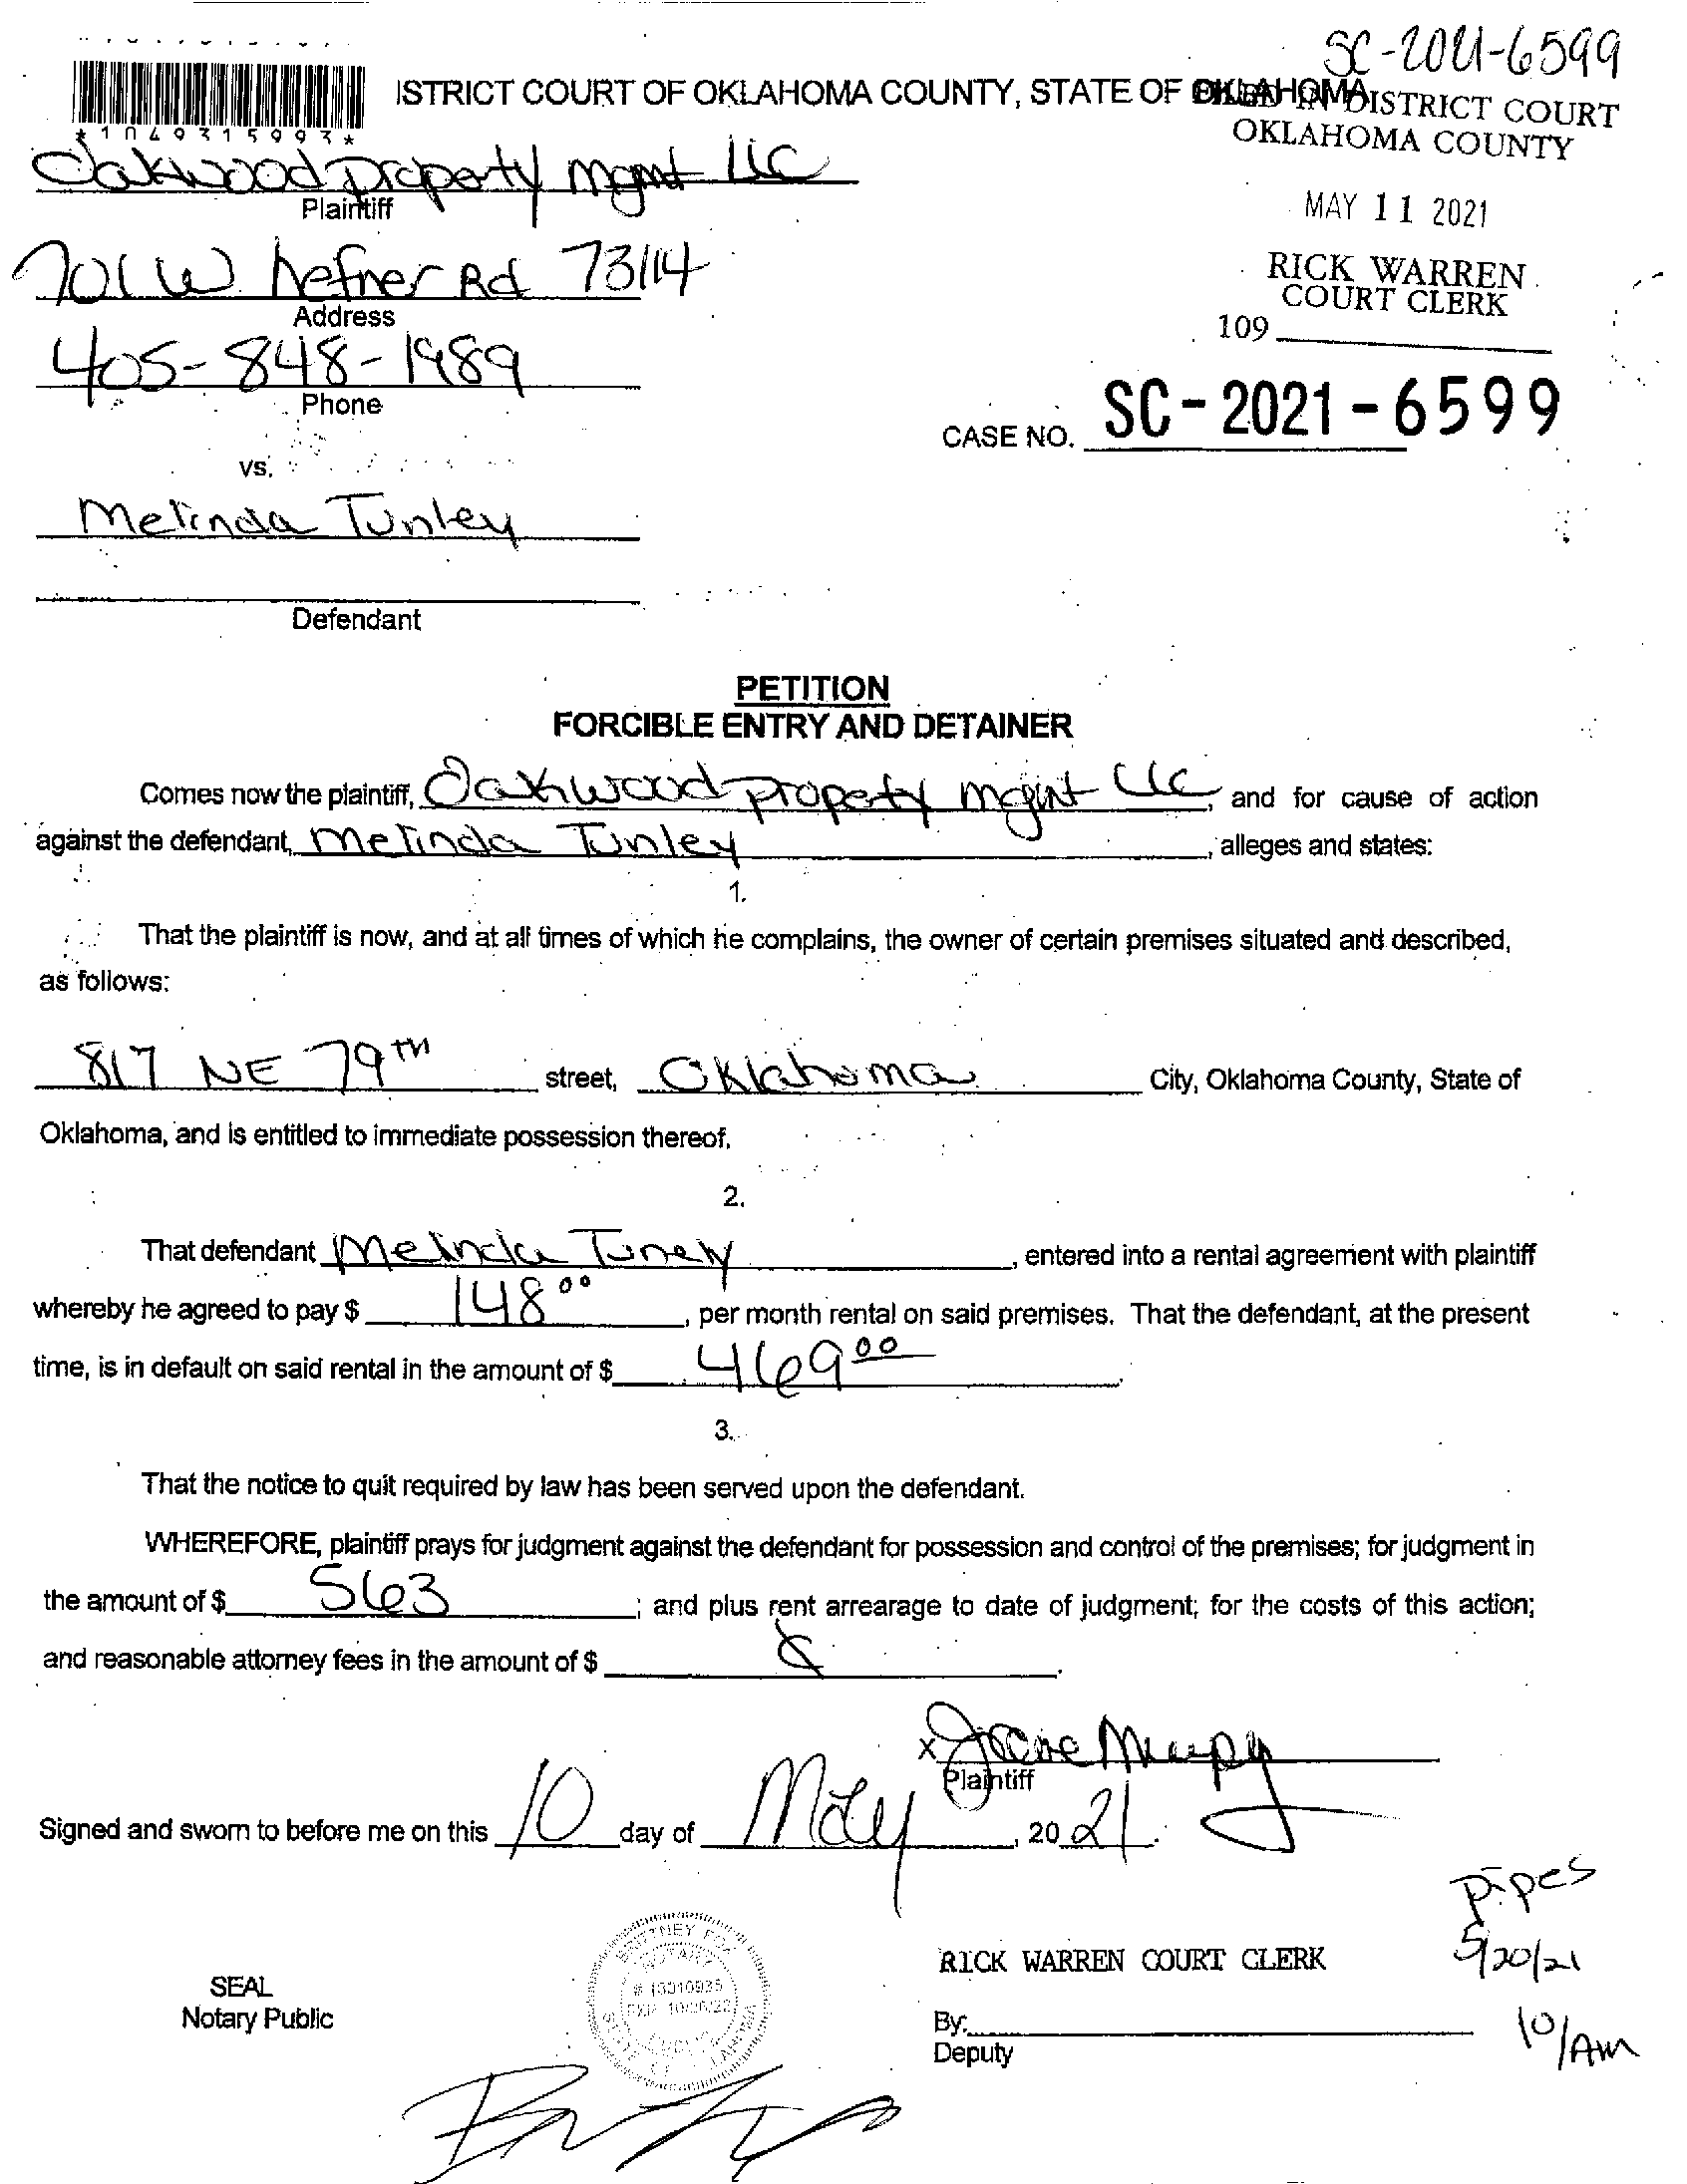 SC-2021-6599
ISTRICT COURT OF OKLAHOMA COUNTY, STATE OF OKLAHOMA
FILED IN DISTRICT COURT
OKLAHOMA COUNTY
*1049315993*
Oakwood property mgmt llc
Plaintiff
MAY 11 2021
701 W hefner Rd 73114
Address
RICK WARREN
COURT CLERK
109
405-848-1989
Phone
CASE NO. SC-2021-6599
vs.
Melinda Tunley
Defendant
PETITION
FORCIBLE ENTRY AND DETAINER
Comes now the plaintiff, Oakwood property mgmt llc, and for cause of action
against the defendant, Melinda Tunley, alleges and states:
1.
That the plaintiff is now, and at all times of which he complains, the owner of certain premises situated and described,
as follows:
817 NE 79TH street, Oklahoma City, Oklahoma County, State of
Oklahoma, and is entitled to immediate possession thereof.
2.
That defendant Melinda Tunely, entered into a rental agreement with plaintiff
whereby he agreed to pay $ 148 00, per month rental on said premises. That the defendant, at the present
time, is in default on said rental in the amount of $ 469 00.
3.
That the notice to quit required by law has been served upon the defendant.
WHEREFORE, plaintiff prays for judgment against the defendant for possession and control of the premises; for judgment in
the amount of $ 563; and plus rent arrearage to date of judgment; for the costs of this action;
and reasonable attorney fees in the amount of $
x
Plaintiff
Signed and sworn to before me on this 10 day of May, 2021.
pipes
5/20/21
10/AM
BRITTNEY FOX
NOTARY
# 13010935
EXP. 10/
PUBLIC
STATE OF OKLAHOMA
SEAL
Notary Public
RICK WARREN COURT CLERK
By:
Deputy